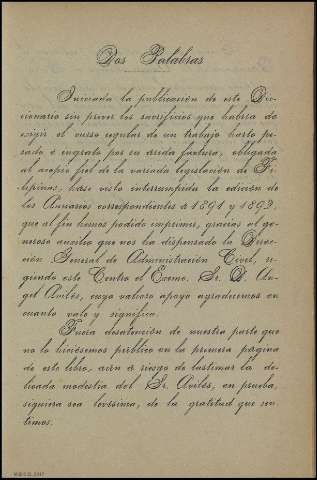 Dos Palabras
Iniciada la publicación de este Dic-
cionario sin prever los sacrificios que habría de
exigir el curso regular de un trabajo harto pe-
sado é ingrato por su árida factura, obligada
al acopio fiel de la variada legislación de Fi-
lipinas, hase visto interrumpida la edición de
los Anuarios correspondientes á 1891 y 1892,
que al fin hemos podido imprimir, gracias al ge-
neroso auxilio que nos ha dispensado la Direc-
ción General de Administración Civil, ri-
giendo este Centro el Excmo. Sr. D. An-
gel Avilés, cuyo valioso apoyo agradecemos en
cuanto vale y significa.
Fuera desatención de nuestra parte que
no lo hiciésemos público en la primera página
de este libro, aún á riesgo de lastimar la de-
licada modestia del Sr. Avilés, en prueba,
siquiera sea levísima, de la gratitud que sen-
timos.